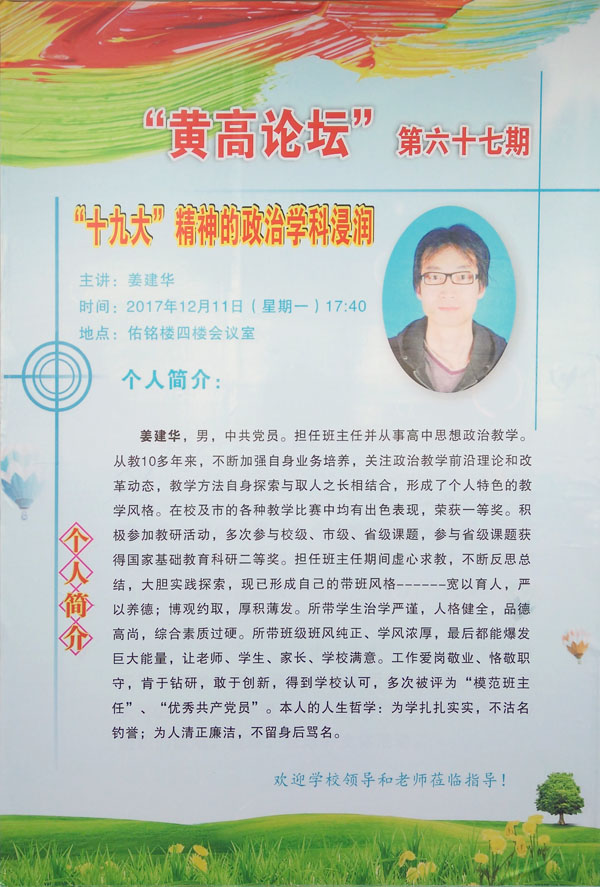 “黄高论坛” 第六十七期
“十九大”精神的政治学科浸润
主讲：姜建华
时间：2017年12月11日（星期一）17:40
地点：佑铭楼四楼会议室
个人简介：
姜建华，男，中共党员。担任班主任并从事高中思想政治教学。
从教10多年来，不断加强自身业务培养，关注政治教学前沿理论和改
革动态，教学方法自身探索与取人之长相结合，形成了个人特色的教
学风格。在校及市的各种教学比赛中均有出色表现，荣获一等奖。积
极参加教研活动，多次参与校级、市级、省级课题，参与省级课题获
得国家基础教育科研二等奖。担任班主任期间虚心求教，不断反思总
结，大胆实践探索，现已形成自己的带班风格------宽以育人，严
以养德；博观约取，厚积薄发。所带学生治学严谨，人格健全，品德
高尚，综合素质过硬。所带班级班风纯正、学风浓厚，最后都能爆发
巨大能量，让老师、学生、家长、学校满意。工作爱岗敬业、恪敬职
守，肯于钻研，敢于创新，得到学校认可，多次被评为“模范班主
任”、“优秀共产党员”。本人的人生哲学：为学扎扎实实，不沽名
钓誉；为人清正廉洁，不留身后骂名。
个人简介
欢迎学校领导和老师莅临指导！